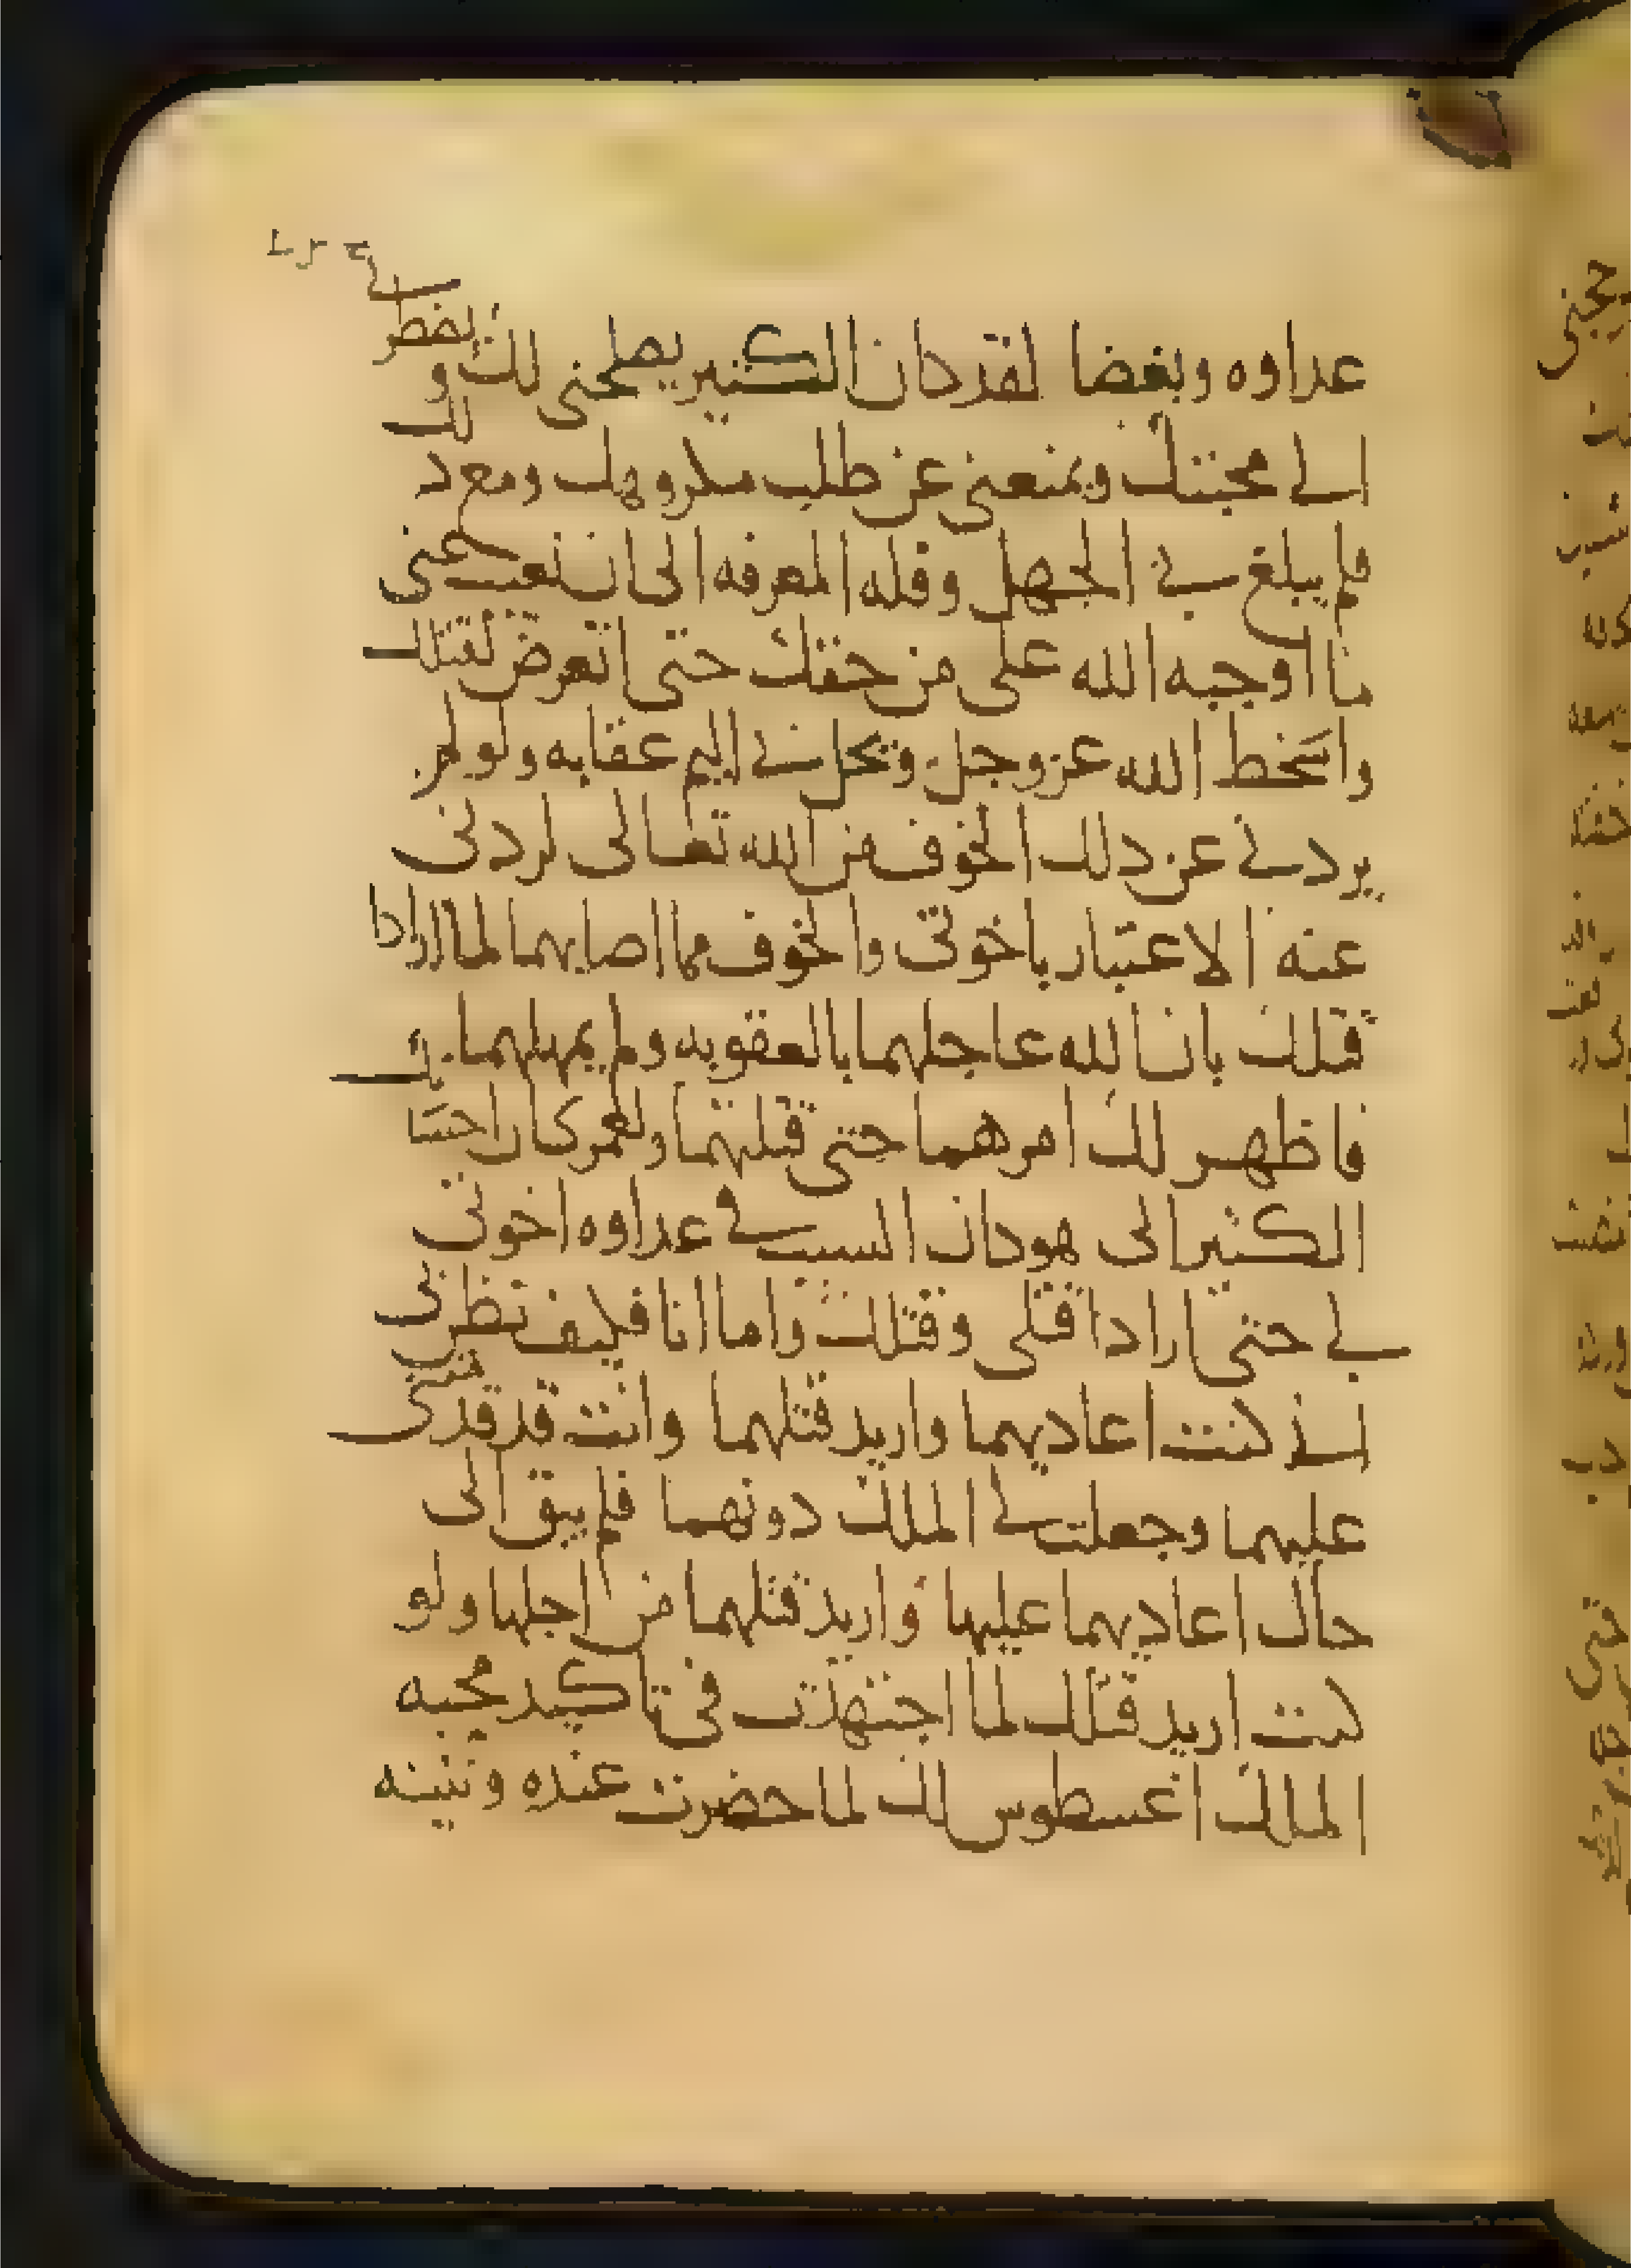 عداوه وبغضا لقد كان الكثير يصلحنى لك و يضطرنى
الى محبتك ويمنعنى عن طلب مكروهك ومع ذلك
فلم يبلغ بى الجهل وقله المعرفه الى ان نعيب عنى
ما اوجبه الله على من حقك حتى اتعرض لقتلك
واسخط الله عز وجل وتحل بى اليم عقابه ولو لم
يردنى عن ذلك الخوف من الله تعالى لردنى
عنه الاعتبار باخوتى والخوف مما اصابهما لما ارادا
قتلك بان الله عاجلهما بالعقوبه ولم يمهلهما بل
فاظهر لك امرهما حتى قتلتهما ولعمر كان احسا
الكثير الى هو كان السبب فى عداوه اخوتى
لى حتى ارادا قتلى وقتلك واما انا فكيف تظن بى
انى كنت اعاديهما واريد قتلهما وانت قد قدمتنى
عليهما وجعلت لى الملك دونهما فلم يبق الى
حال اعاديهما عليها واريد قتلهما من اجلها ولو
كنت اريد قتلك لما اجتهدت فى تاكيد محبه
الملك اغسطوس لك لما حضرت عنده وتثبيته